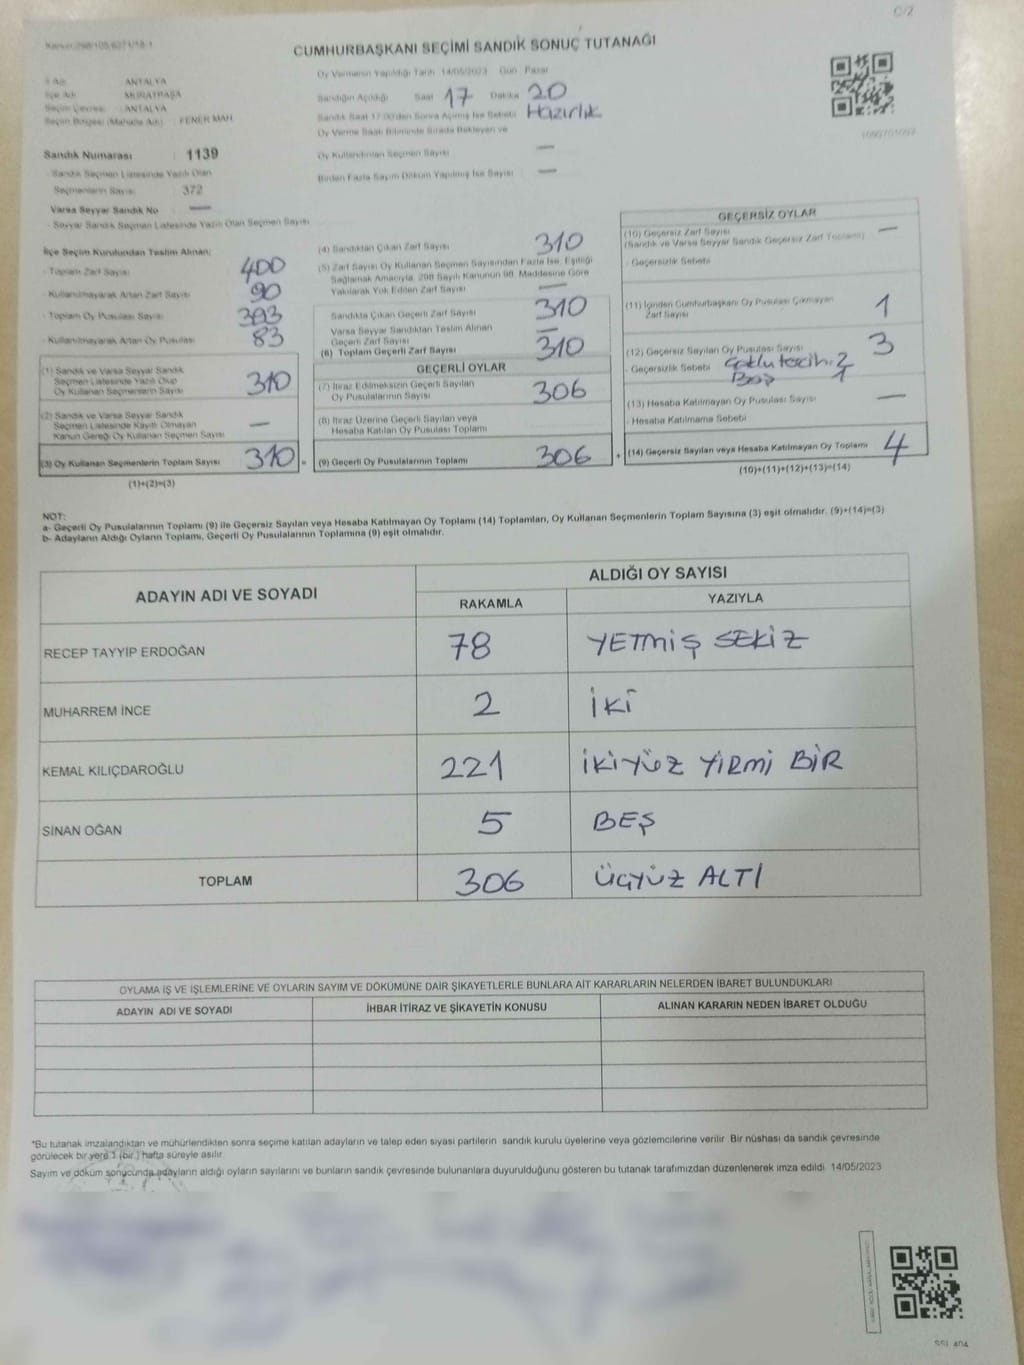 C/2
CUMHURBAŞKANI SEÇİMİ SANDIK SONUÇ TUTANAĞI
İl Adı : ANTALYA
İlçe Adı : MURATPAŞA
Seçim Çevresi : ANTALYA
Seçim Bölgesi (Mahalle Adı) : FENER MAH
Sandık Numarası : 1139
- Sandık Seçmen Listesinde Yazılı Olan
Seçmenlerin Sayısı : 372
Varsa Seyyar Sandık No —
- Seyyar Sandık Seçmen Listesinde Yazılı Olan Seçmen Sayısı
Oy Vermenin Yapıldığı Tarih 14/05/2023 Gün Pazar
Sandığın Açıldığı Saat 17 Dakika 20
Sandık Saat 17:00'den Sonra Açılmış İse Sebebi Hazırlık
Oy Verme Saati Bitiminde Sırada Bekleyen ve
Oy Kullandırılan Seçmen Sayısı —
Birden Fazla Sayım Döküm Yapılmış İse Sayısı —
İlçe Seçim Kurulundan Teslim Alınan;
- Toplam Zarf Sayısı 400
- Kullanılmayarak Artan Zarf Sayısı 90
- Toplam Oy Pusulası Sayısı 393
- Kullanılmayarak Artan Oy Pusulası 83
(1) Sandık ve Varsa Seyyar Sandık
Seçmen Listesinde Yazılı Olup
Oy Kullanan Seçmenlerin Sayısı 310
(2) Sandık ve Varsa Seyyar Sandık
Seçmen Listesinde Kayıtlı Olmayan
Kanun Gereği Oy Kullanan Seçmen Sayısı —
(3) Oy Kullanan Seçmenlerin Toplam Sayısı 310 =
(1)+(2)=(3)
(4) Sandıktan Çıkan Zarf Sayısı 310
(5) Zarf Sayısı Oy Kullanan Seçmen Sayısından Fazla İse, Eşitliği
Sağlamak Amacıyla, 298 Sayılı Kanunun 98. Maddesine Göre
Yakılarak Yok Edilen Zarf Sayısı —
Sandıkta Çıkan Geçerli Zarf Sayısı 310
Varsa Seyyar Sandıktan Teslim Alınan
Geçerli Zarf Sayısı —
(6) Toplam Geçerli Zarf Sayısı 310
GEÇERLİ OYLAR
(7) İtiraz Edilmeksizin Geçerli Sayılan
Oy Pusulasının Sayısı 306
(8) İtiraz Üzerine Geçerli Sayılan veya
Hesaba Katılan Oy Pusulası Toplamı
(9) Geçerli Oy Pusulalarının Toplamı 306 +
GEÇERSİZ OYLAR
(10) Geçersiz Zarf Sayısı —
(Sandık ve Varsa Seyyar Sandık Geçersiz Zarf Toplamı)
- Geçersizlik Sebebi
(11) İçinden Cumhurbaşkanı Oy Pusulası Çıkmayan
Zarf Sayısı 1
(12) Geçersiz Sayılan Oy Pusulası Sayısı 3
- Geçersizlik Sebebi Çoklu tercih: 2
Boş 1
(13) Hesaba Katılmayan Oy Pusulası Sayısı —
- Hesaba Katılmama Sebebi
(14) Geçersiz Sayılan veya Hesaba Katılmayan Oy Toplamı 4
(10)+(11)+(12)+(13)=(14)
NOT:
a- Geçerli Oy Pusulalarının Toplamı (9) ile Geçersiz Sayılan veya Hesaba Katılmayan Oy Toplamı (14) Toplamları, Oy Kullanan Seçmenlerin Toplam Sayısına (3) eşit olmalıdır. (9)+(14)=(3)
b- Adayların Aldığı Oyların Toplamı, Geçerli Oy Pusulalarının Toplamına (9) eşit olmalıdır.
ADAYIN ADI VE SOYADI ALDIĞI OY SAYISI
RAKAMLA YAZIYLA
RECEP TAYYİP ERDOĞAN 78 YETMİŞ SEKİZ
MUHARREM İNCE 2 İKİ
KEMAL KILIÇDAROĞLU 221 İKİYÜZ YİRMİ BİR
SİNAN OĞAN 5 BEŞ
TOPLAM 306 ÜÇYÜZ ALTI
OYLAMA İŞ VE İŞLEMLERİNE VE OYLARIN SAYIM VE DÖKÜMÜNE DAİR ŞİKAYETLERLE BUNLARA AİT KARARLARIN NELERDEN İBARET BULUNDUKLARI
ADAYIN ADI VE SOYADI İHBAR İTİRAZ VE ŞİKAYETİN KONUSU ALINAN KARARIN NEDEN İBARET OLDUĞU
*Bu tutanak imzalandıktan ve mühürlendikten sonra seçime katılan adayların ve talep eden siyasi partilerin sandık kurulu üyelerine veya gözlemcilerine verilir. Bir nüshası da sandık çevresinde
görülecek bir yere 1 (bir.) hafta süreyle asılır.
Sayım ve döküm sonucunda adayların aldığı oyların sayılarını ve bunların sandık çevresinde bulunanlara duyurulduğunu gösteren bu tutanak tarafımızdan düzenlenerek imza edildi. 14/05/2023